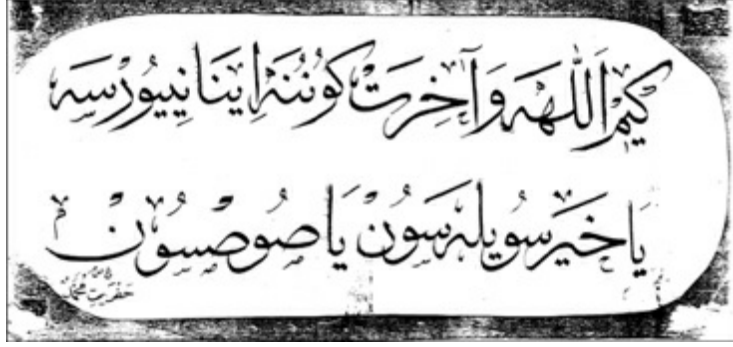 كيم اللهه وآخرت كوننه اينانييورسه
يا خير سويله سون يا صوصسون
حضرت محمد